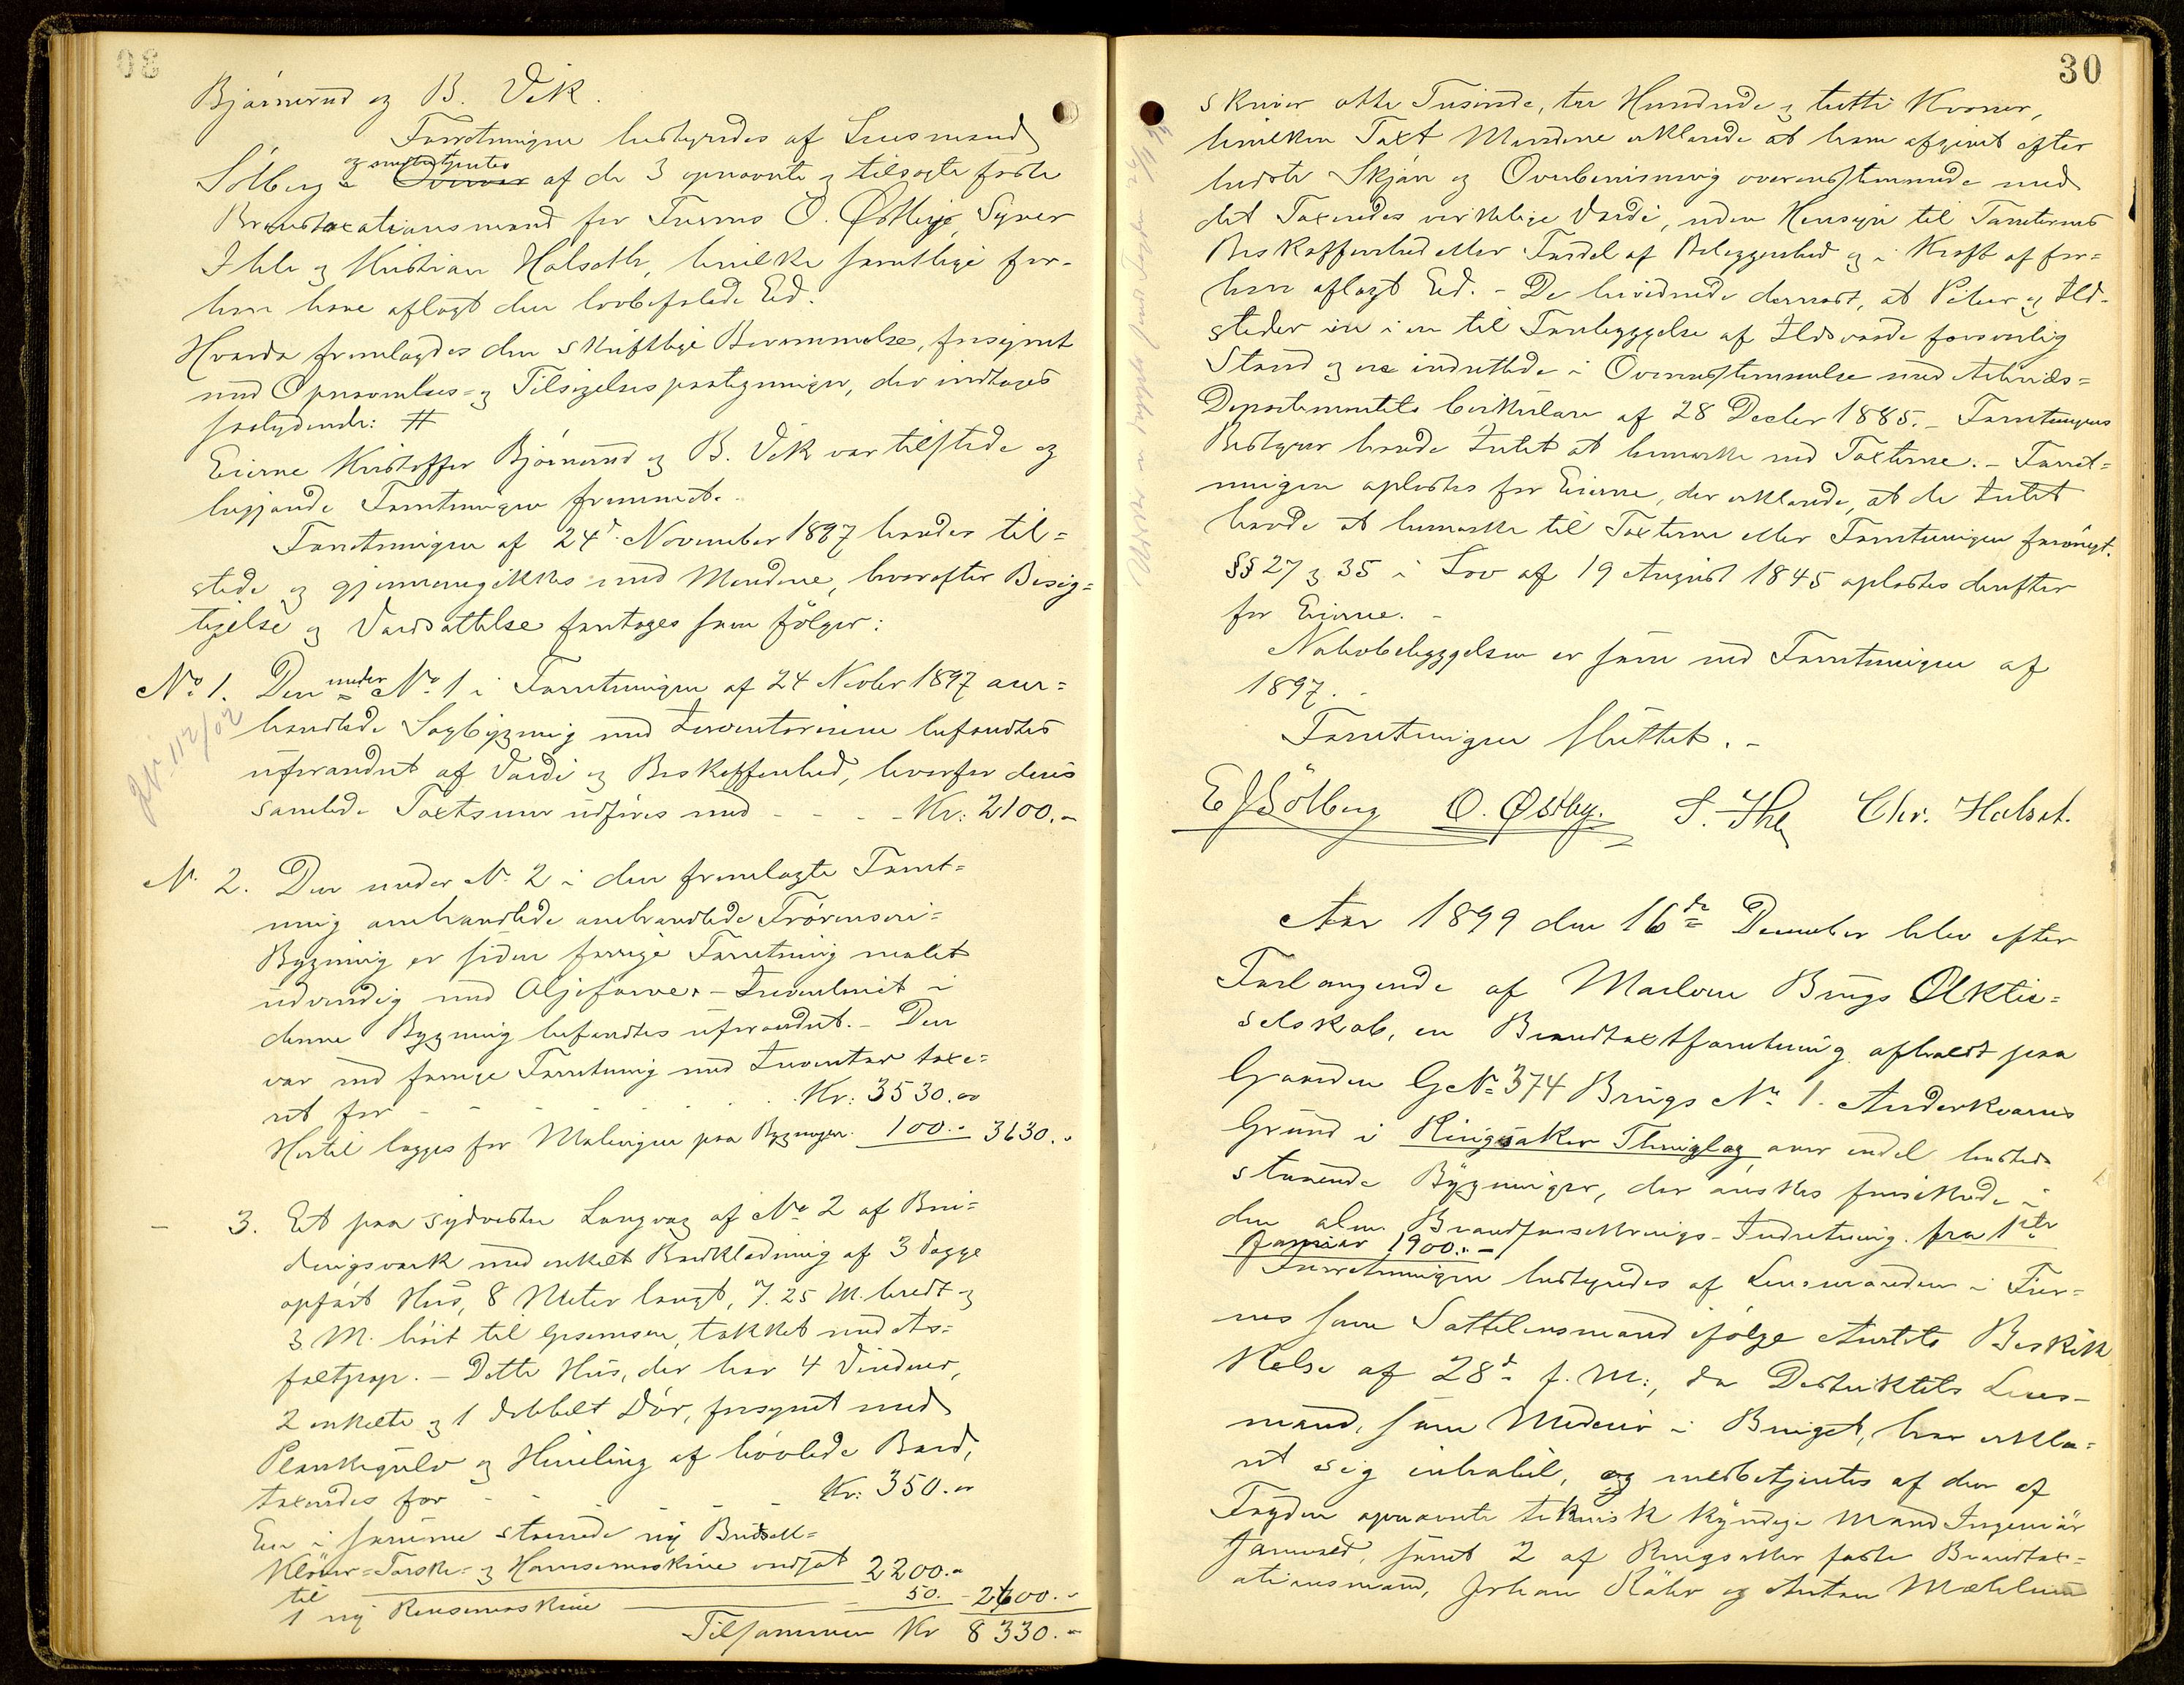 Bjørnerud og B. Vik.
Forretningen bestyredes af Lensmand
og medbetjentes
Sölberg af de 3 opnævnte og tilsagte faste
Brandtaxationsmænd for Furnes O. Østby, Syver
Ihle og Kristian Halseth, hvilke samtlige for-
hen have aflagt den lovbefalede Ed.
Hvorda fremlagdes den skriftlige Berammelse, forsynet
med Opnævnelses- og Tilsigelsespaategninger, der indtages
saalydende: #
Eierne Kristoffer Björnerud og B. Vik var tilstede og
begjærede Forretningen fremmet.
Forretningen af 24d November 1897 havdes til=
stede og gjennemgikkes med Mændene, hvorefter Besig=
tigelse og Værdsættelse foretoges som følger:
No 1. Den under No 1 i Forretningen af 24 Novbr 1897 om=
handlede Sagbygning med Inventarium befandtes
uforandret af Værdi og Beskaffenhed, hvorfor deres
samlede Taxtsum udføres med - - - Kr: 2100.-
N. 2. Den under N. 2 i den fremlagte Forret=
ning omhandlede omhandlede Tröskeri=
Bygning er siden forrige Forretning malet
udvendig med Oljefarve. - Inventariet i
denne Bygning befandtes uforandret. - Den
var ved forrige Forretning med Inventar taxe=
ret for - - - - Kr: 3530.00
Hertil lægges for Malingen paa Bygningen 100.- 3630.-
- 3. Et paa sydvestre Langvæg af No 2 af Bin=
dingsværk med enkelt Bordklædning af 3 Vægge
opført Hus, 8 Meter langt, 7.25 M. bredt og
3 M. höit til Gesimsen, tækket med As=
faltpap. - Dette Hus, der har 4 Vinduer,
2 enkelte og 1 dobbelt Dör, forsynet med
Plankegulv og Himling af hövlede Bord,
taxeredes for - - - - Kr: 350.00
En i samme staaende ny
Klöver=Tærske= og Hamsemaskine ansat
til 2200.-
1 ny Rensemaskine 50.- 2600.-
Tilsammen Kr 8330.-
JN 112/02
30
skriver otte Tusinde, tre Hundrede og tretti Kroner,
hvilken Taxt Mændene erklærede at have afgivet efter
bedste Skjön og Overbevisning overensstemmende med
det Taxeredes virkelige Værdi, uden Hensyn til Tomternes
Beskaffenhed eller Fordel af Beliggenhed og i Kraft af for=
hen aflagt Ed. - De bevidnede dernæst, at Piber og Ild-
steder ere i en til Forebyggelse af Ildsvaade forsvarlig
Stand og ere indrettede i Overensstemmelse med Arbeids=
Departementets Cirkulære af 28 Decbr 1885. - Forretningens
Bestyrer havde Intet at bemærke ved Taxterne. - Forret=
ningen oplæstes for Eierne, der erklærede, at de Intet
havde at bemærke til Taxterne eller Forretningen forövrigt.
§§ 27 og 35 i Lov af 19 August 1845 oplæstes derefter
for Eierne. -
Nabobebyggelsen er som ved Forretningen af
1897. -
Forretningen sluttet. -
E J Sölberg O. Østby. S. Ihle Chr. Halset.
Aar 1899 den 16de December blev efter
Forlangende af Maelum Brugs Aktie=
selskab, en Brandtaxtforretning afholdt paa
Gaarden G No 374 Brugs No 1. Anderkværns
Grund i Ringsaker Thinglag over endel hersteds
staaende Bygninger, der önskes forsikrede i
den alm. Brandforsikrings-Indretning fra 1ste
Januar 1900. -
Forretningen bestyredes af Lensmanden i Fur=
nes som Sættelensmand ifölge Amtets Beskik
kelse af 28de f. M., da Distriktets Lens-
mand, som Medeier i Bruget, har erklæ=
ret sig inhabil, og medbetjentes af den af
Fogden opnævnte teknisk kyndige Mand Ingeniör
samt 2 af Ringsaker faste Brandtax=
ationsmænd, Johan Röhr og Anton Mæhlum